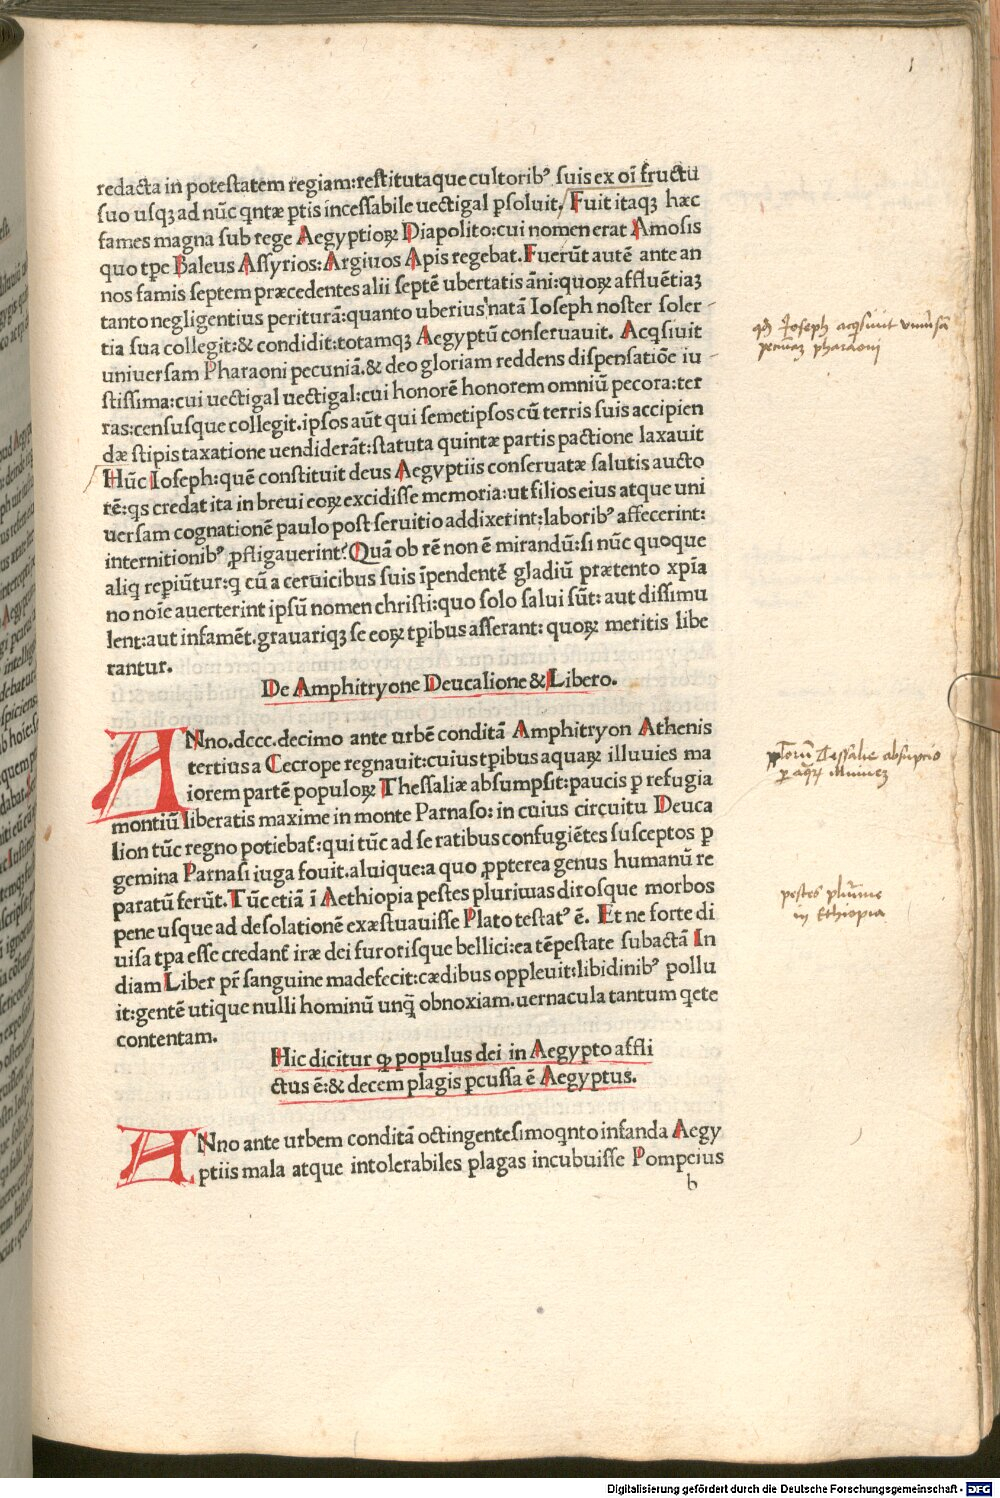 redacta in potestatem regiam:restitutaque cultoribꝰ suis ex oĩ fructu
suo usqꝫ ad nũc qntæ ꝑtis incessabile uectigal ꝑsoluit. Fuit itaqꝫ hæc
fames magna sub rege Aegyptioꝝ Diapolito:cui nomen erat Amosis
quo tꝑe Baleus Assyrios:Argiuos Apis regebat.Fuerũt autẽ ante an
nos famis septem præcedentes alii septẽ ubertatis ãni:quoꝝ affluẽtiaꝫ
tanto negligentius periturã:quanto uberius natã Ioseph noster soler
tia sua collegit:& condidit:totamqꝫ Aegyptũ conseruauit. Acqsiuit
uniuersam Pharaoni pecuniã.& deo gloriam reddens dispensatiõe iu
stissima:cui uectigal uectigal:cui honorẽ honorem omniũ pecora:ter
ras:censusque collegit.ipsos aũt qui semetipsos cũ terris suis accipien
dæ stipis taxatione uendiderãt:statuta quintæ partis pactione laxauit
Hũc Ioseph:quẽ constituit deus Aegyptiis conseruatæ salutis aucto
rẽ:qs credat ita in breui eoꝝ excidisse memoria:ut filios eius atque uni
uersam cognationẽ paulo post seruitio addixerint:laboribꝰ affecerint:
internitionibꝰ ꝓfligauerint?Quã ob rẽ non ẽ mirandũ:si nũc quoque
aliq reꝑiũtur:q cũ a ceruicibus suis ĩpendentẽ gladiũ prætento xp̃ia
no noĩe auerterint ipsũ nomen christi:quo solo salui sũt: aut dissimu
lent:aut infamẽt.grauariqꝫ se eoꝝ tꝑibus asserant: quoꝝ meritis libe
rantur.
De Amphitryone Deucalione & Libero.
ANno.dccc.decimo ante urbẽ conditã Amphitryon Athenis
tertius a Cecrope regnauit:cuius tꝑibus aquaꝝ illuuies ma
iorem partẽ populoꝝ Thessaliæ absumpsit:paucis ꝑ refugia
montiũ liberatis maxime in monte Parnaso: in cuius circuitu Deuca
lion tũc regno potiebat̃:qui tũc ad se ratibus confugiẽtes susceptos ꝑ
gemina Parnasi iuga fouit.aluique:a quo ꝓpterea genus humanũ re
paratũ ferũt.Tũc etiã ĩ Aethiopia pestes plurimas dirosque morbos
pene usque ad desolationẽ exæstuauisse Plato testatꝰ ẽ. Et ne forte di
uisa tꝑa esse credant̃ iræ dei furorisque bellici:ea tẽpestate subactã In
diam Liber pr̃ sanguine madefecit:cædibus oppleuit:libidinibꝰ pollu
it:gentẽ utique nulli hominũ unq̃ obnoxiam.uernacula tantum qete
contentam.
Hic dicitur ꝙ populus dei in Aegypto affli
ctus ẽ:& decem plagis ꝑcussa ẽ Aegyptus.
ANno ante urbem conditã octingentesimoqnto infanda Aegy
ptiis mala atque intolerabiles plagas incubuisse Pompeius
b
1
qd Joseph acqsiuit vniu̅sã
pecuniaꝫ pharaoni
Tessalie absu̅ptio
pestes plurime
in Ethiopia
Digitalisierung gefördert durch die Deutsche Forschungsgemeinschaft - DFG